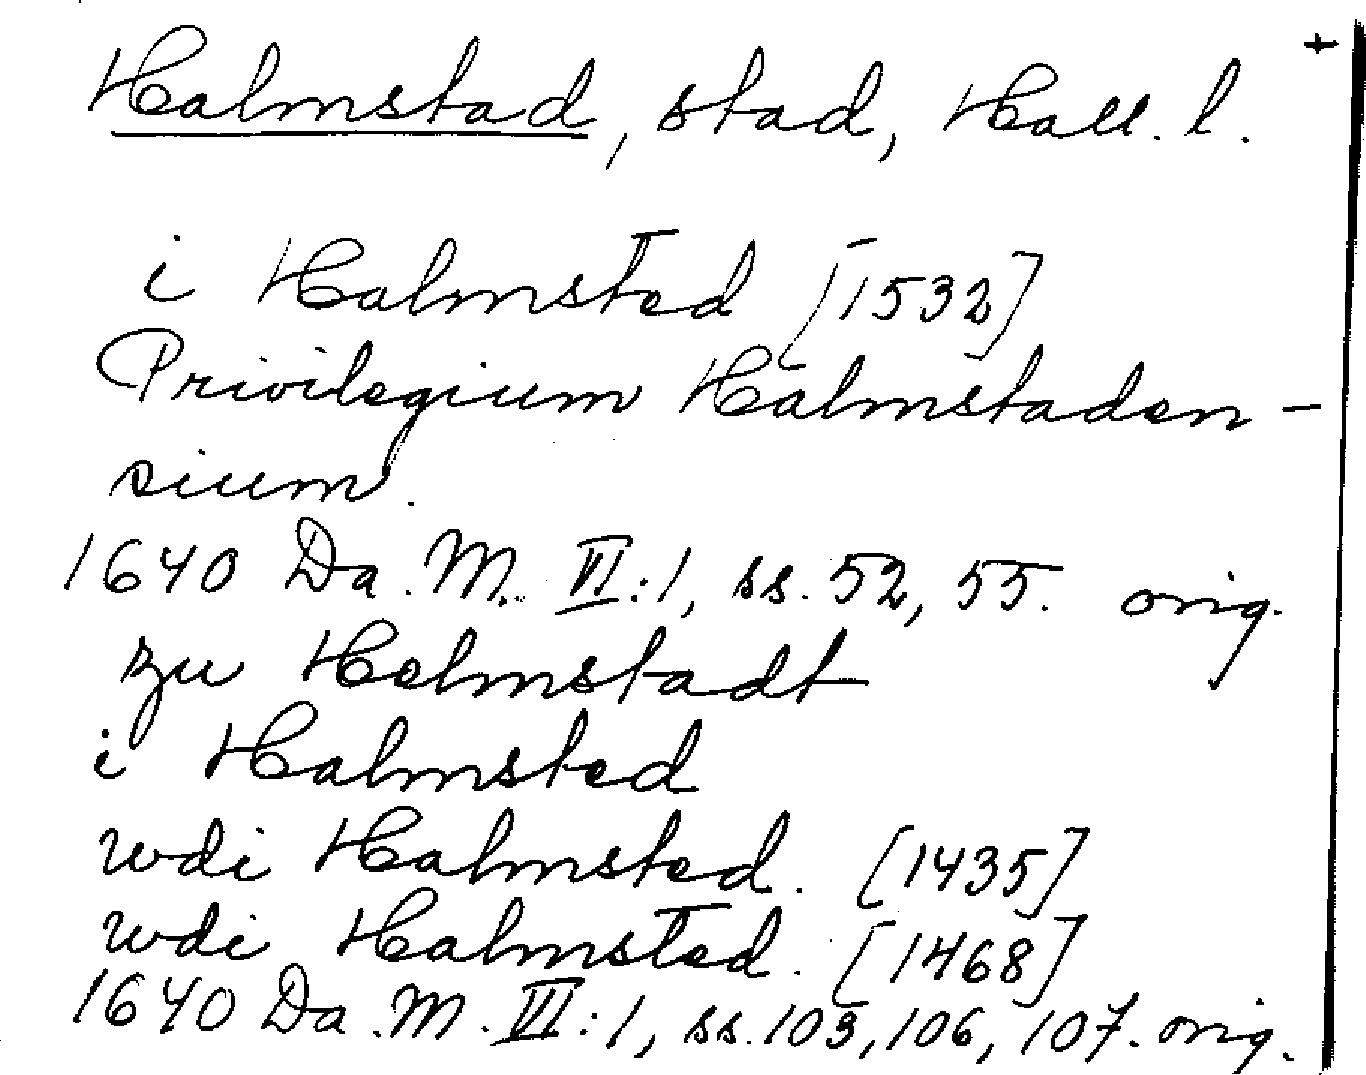 +
Halmstad, stad, Hall. l.
i Halmsted [1532]
Privilegium Halmstaden-
sium.
1640 Da. M. VI:1, ss. 52, 55. orig.
zu Helmstadt
i Halmsted
wdi Halmsted. [1435]
wdi Halmsted. [1468]
1640 Da. M. VI:1, ss. 103, 106, 107. orig.